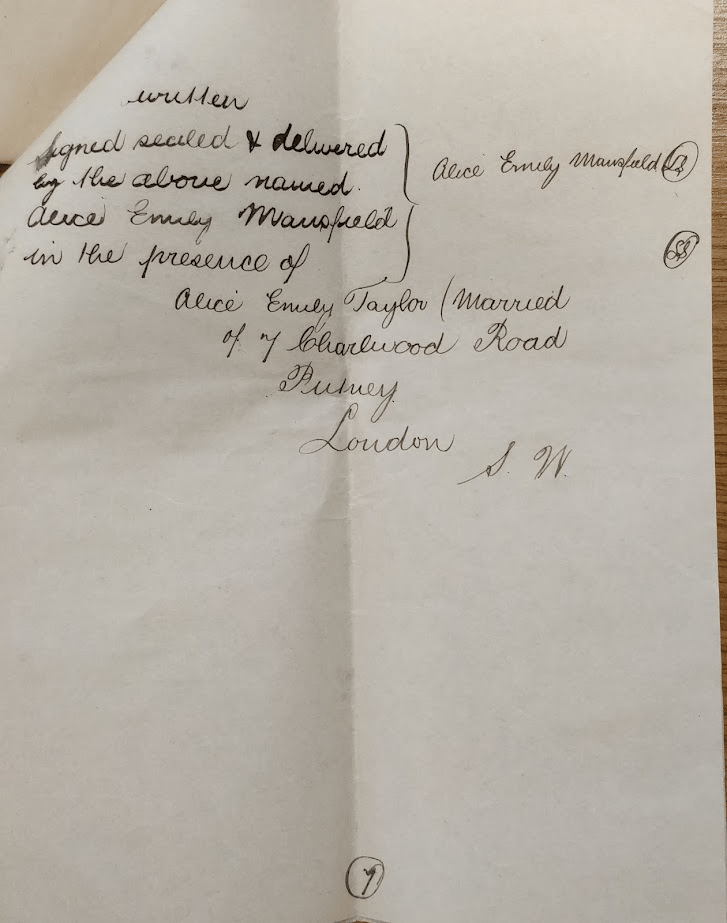 written
signed sealed & delivered
by the above named
Alice Emily Mansfield
in the presence of
Alice Emily Mansfield LS
LS
Alice Emily Taylor (Married
of 7 Charlwood Road
Putney
London
S. W.
7